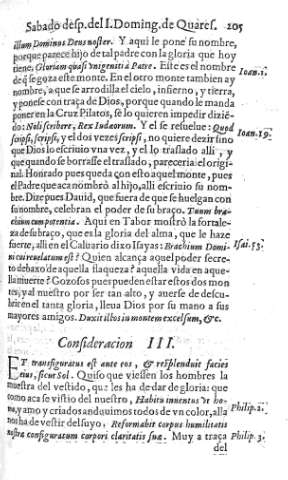 Sabado desp. del I. Doming. de Quares. 205
illum Dominus Deus noster. Y aqui le pone su nombre,
porque parece hijo de tal padre con la gloria que hoy
tiene, Gloriam quasi vnigeniti à Patre. Este es el nombre
de q̃ se goza este monte. En el otro monte tambien ay Ioan.1.
nombre, a que se arrodilla el cielo, infierno, y tierra,
y ponese con traça de Dios, porque quando le manda
poner en la Cruz Pilatos, se lo quieren impedir dizié-
do: Noli scribere, Rex Iudæorum. Y el se resuelue: Quod
scripsi, scripsi, y el dos vezes scripsi, no quiere dezir sino Ioan.19.
que Dios lo escriuio vna vez, y el lo traslado alli, y
que quando se borrasse el traslado, pareceria el origi-
nal. Honrado pues queda con esto aquel monte, pues
el Padre que aca nombrò al hijo, alli escriuio su nom-
bre. Dize pues Dauid, que fuera de que se huelgan con
su nombre, celebran el poder de su braço. Tuum bra-
chium cum potentia. Aqui en Tabor mostrò la fortale-
za de su braço, que es la gloria del alma, que le haze
fuerte, alli en el Caluario dixo Isayas: Brachium Domi-
ni cui reuelatum est? Quien alcança aquel poder secre- Isai.53.
to debaxo de aquella flaqueza? aquella vida en aque-
lla muerte? Gozosos pues pueden estar estos dos mon
tes, y al nuestro por ser tan alto, y auerse de descu-
brir en el tanta gloria, lleua Dios por su mano a sus
mayores amigos. Duxit illos in montem excelsum, &c.
Consideracion III.
ET transfiguratus est ante eos, & resplenduit facies
eius, sicut Sol. Quiso que viessen los hombres la
muestra del vestido, que les ha de dar de gloria: que
como aca se vistio del nuestro, Habitu inuentus vt ho-
mo, y amo y criados anduuimos todos de vn color, alla Philip.2.
nos ha de vestir del suyo. Reformabit corpus humilitatis
nostræ configuratum corpori claritatis suæ. Muy a traça Philip.3.
del